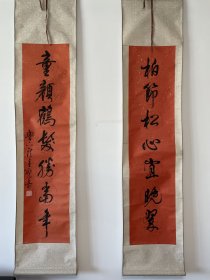 柏節松心宜晚翠
童顏鶴髮勝當年